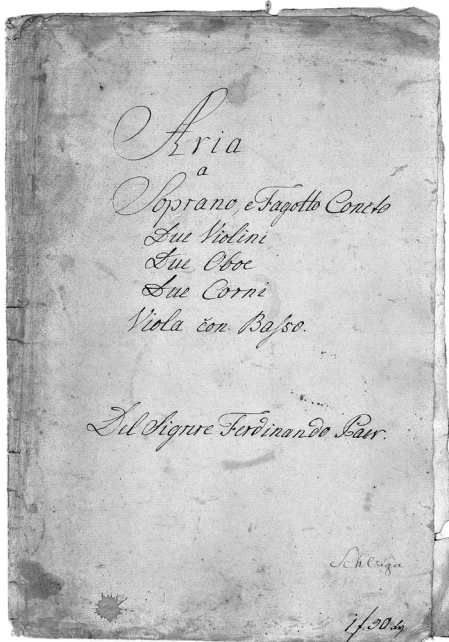 Aria
a
Soprano, e Fagotto Concto
Due Violini
Due Oboe
Due Corni
Viola con Basso.
Del Signre Ferdinando Paer.